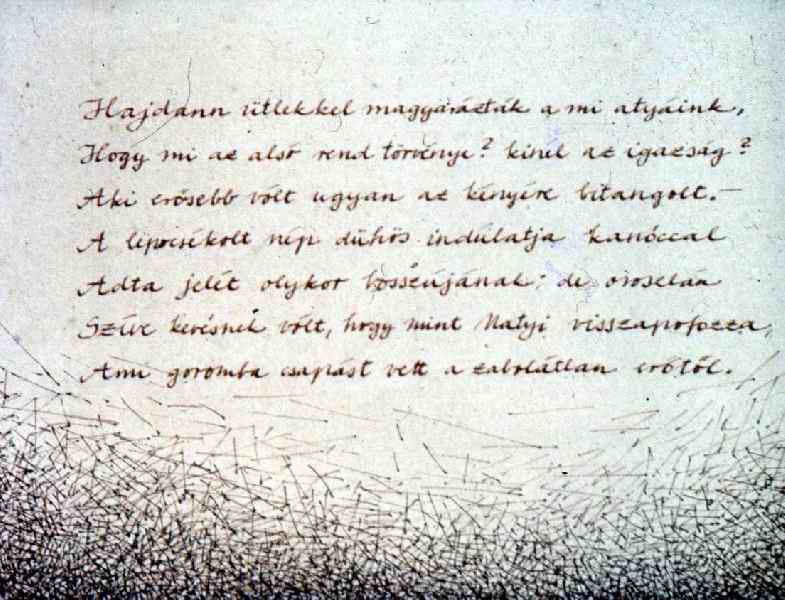 Hajdann ütlekkel magyarázták a mi atyáink,
Hogy mi az alsó rend törvénye? kinél az igazság?
Aki erősebb vólt ugyan az kényére bitangolt.—
A lipocsékolt nép dühös indúlatja kanóccal
Adta jelét olykor bosszújának; de oroszlán
Szíve kevésnek vólt, hogy mint Matyi visszapofozza,
Ami goromba csapást vett a zabolátlan erőtől.